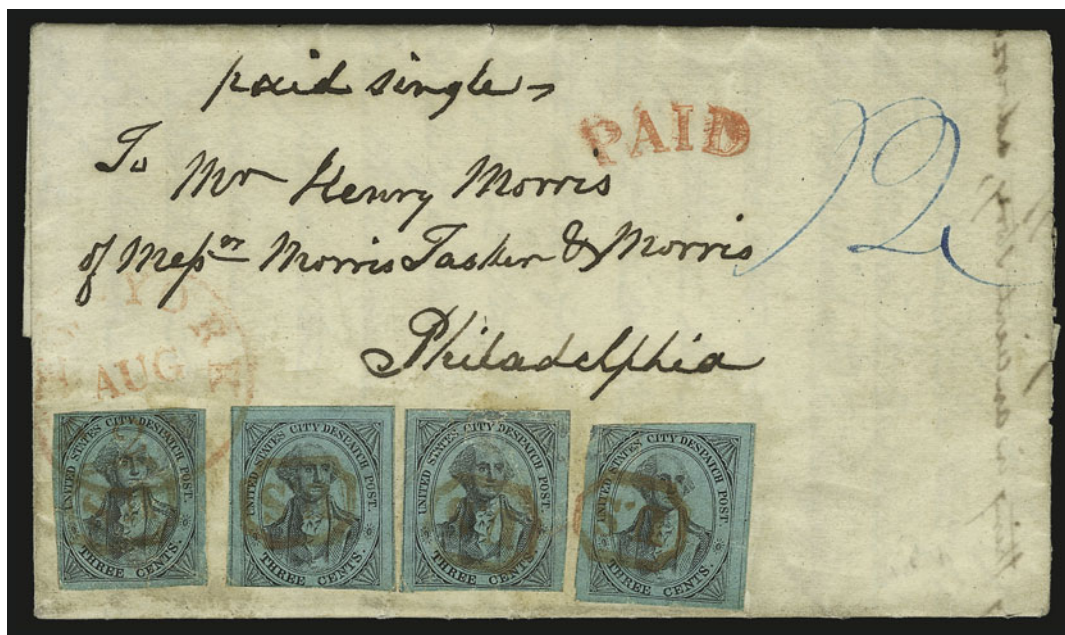 paid single
PAID
To
Mr Henry Morris
12
of Messrs Morris Tasker & Morris
Philadelphia
NEW YORK
AUG
UNITED STATES CITY DESPATCH POST.
THREE CENTS.
UNITED STATES CITY DESPATCH POST.
THREE CENTS.
UNITED STATES CITY DESPATCH POST.
THREE CENTS.
UNITED STATES CITY DESPATCH POST.
THREE CENTS.